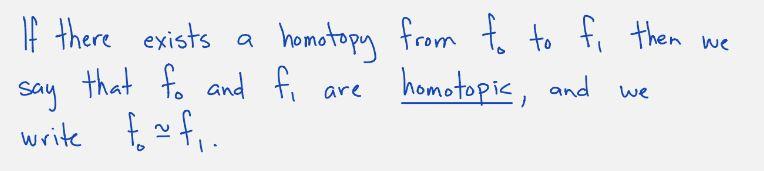 If there exists a homotopy from f₀ to f₁ then we
say that f₀ and f₁ are homotopic, and we
write f₀ ≃ f₁.